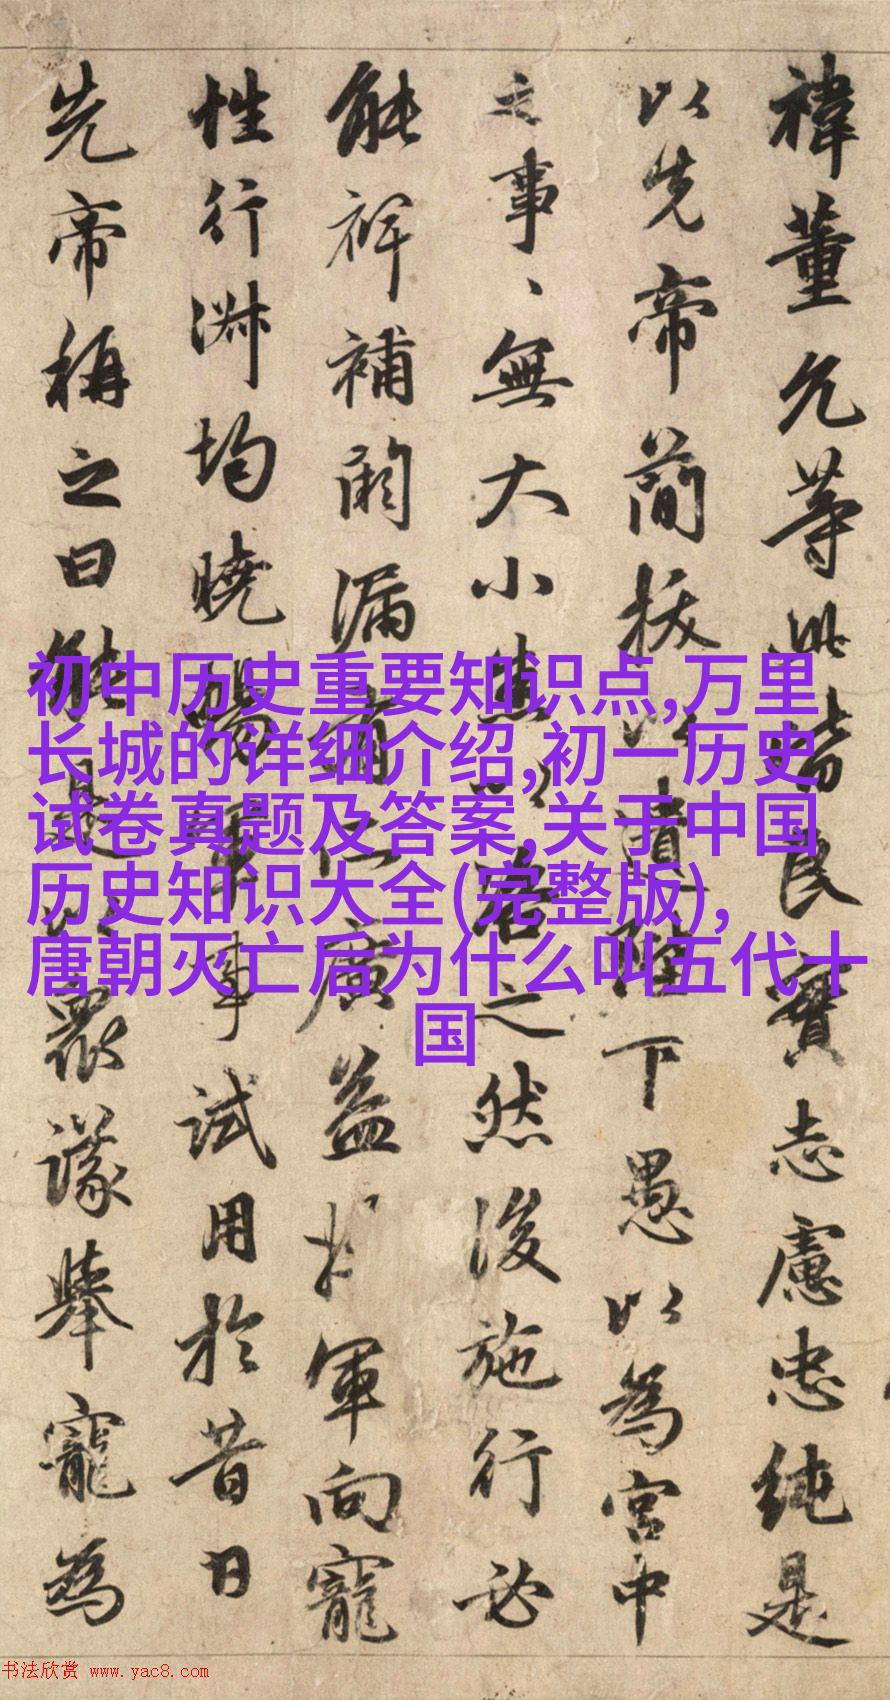 禕董允等此皆良實志慮忠純是
以先帝簡拔以遺陛下愚以為宮中
之事、無大小悉以咨之然後施行必
能裨補闕漏有所廣益將軍向寵
性行淑均曉暢軍事試用於昔日
先帝稱之曰能是以眾議舉寵為
初中历史重要知识点,万里
长城的详细介绍,初一历史
试卷真题及答案,关于中国
历史知识大全(完整版),
唐朝灭亡后为什么叫五代十
国
书法欣赏 www.yac8.com